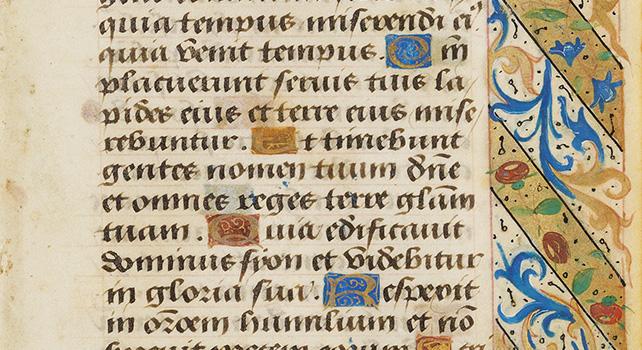 quia tempus miserendi eiꝰ
quia venit tempus. Qm̄
placuerunt servis tuis la
pides eius et terre eius mise
rebuntur. Et timebunt
gentes nomen tuum dn̄e
et omnes reges terre gl̄am
tuam Quia edificavit
dominus sion et videbitur
in gloria sua. Respexit
in or̄oem humilium et nō